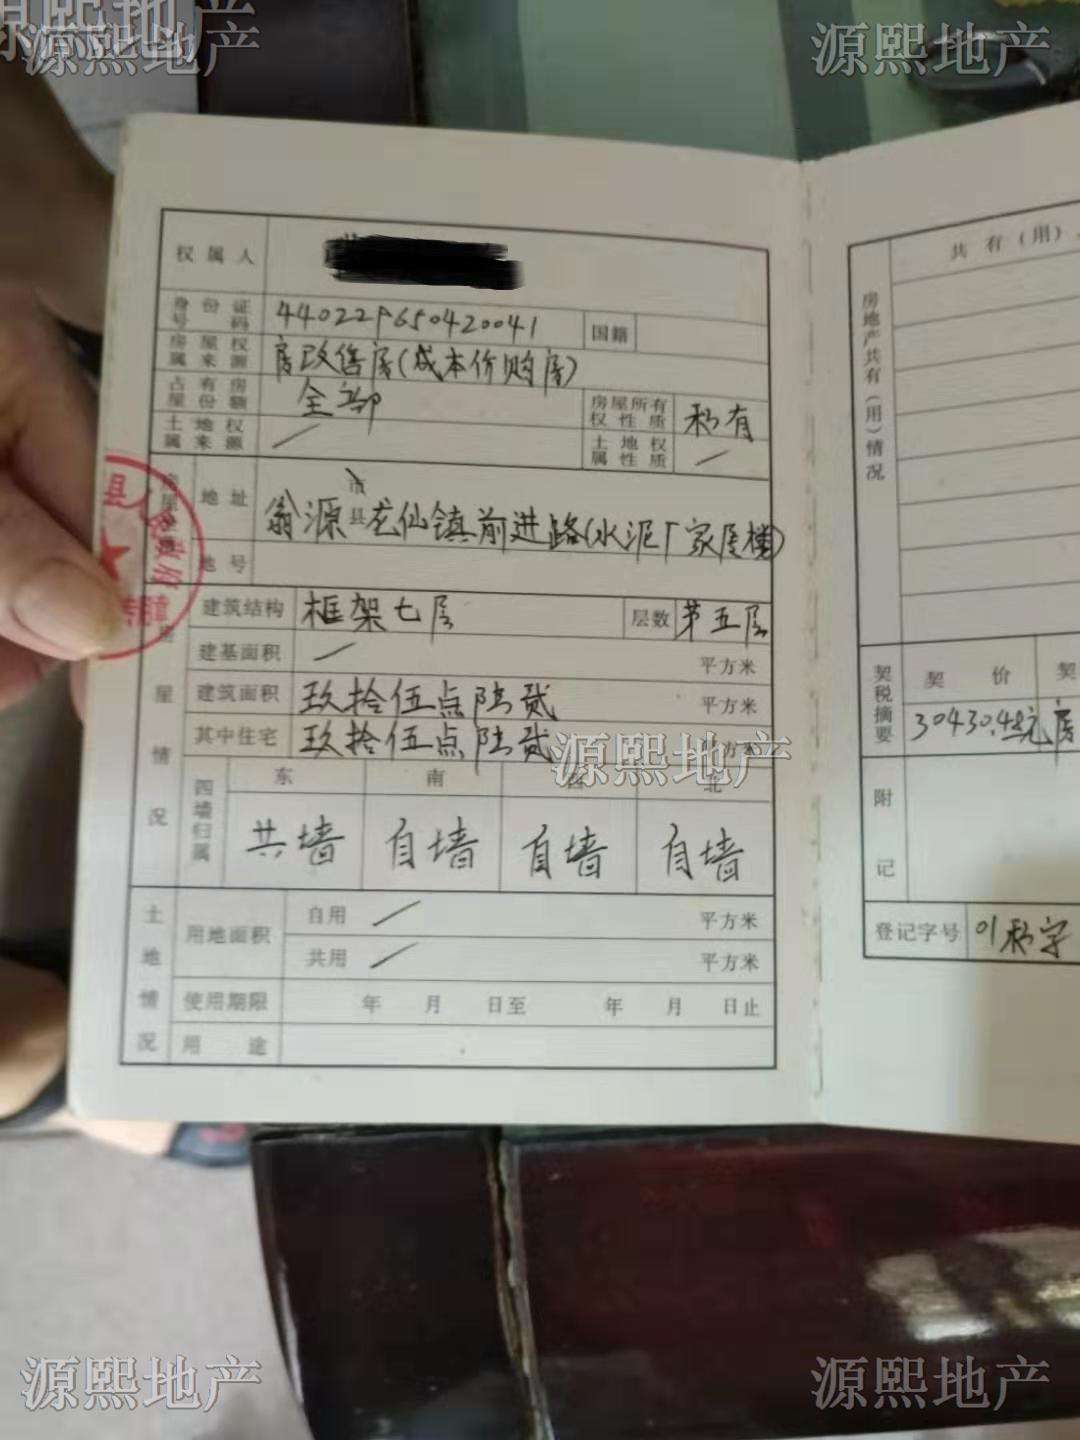 源熙地产
源熙地产
源熙地产
权属人
身份证号码 440229650420041 国籍
房屋权属来源 房改售房(成本价购房)
占有房屋份额 全部 房屋所有权性质 私有
土地权属来源 / 土地权属性质 /
地址 翁源 市县 龙仙镇前进路(水泥厂家居楼)
地号
建筑结构 框架七层 层数 第五层
建基面积 / 平方米
建筑面积 玖拾伍点陆贰 平方米
其中住宅 玖拾伍点陆贰 平方米
源熙地产
屋情况
四墙归属 东 南 西 北
共墙 自墙 自墙 自墙
土地情况
用地面积 自用 / 平方米
共用 / 平方米
使用期限 年 月 日至 年 月 日止
用途
共有(用)
房地产共有(用)情况
契税摘要 契价 契
30430.48元 房
附记
登记字号 01私字
源熙地产
源熙地产